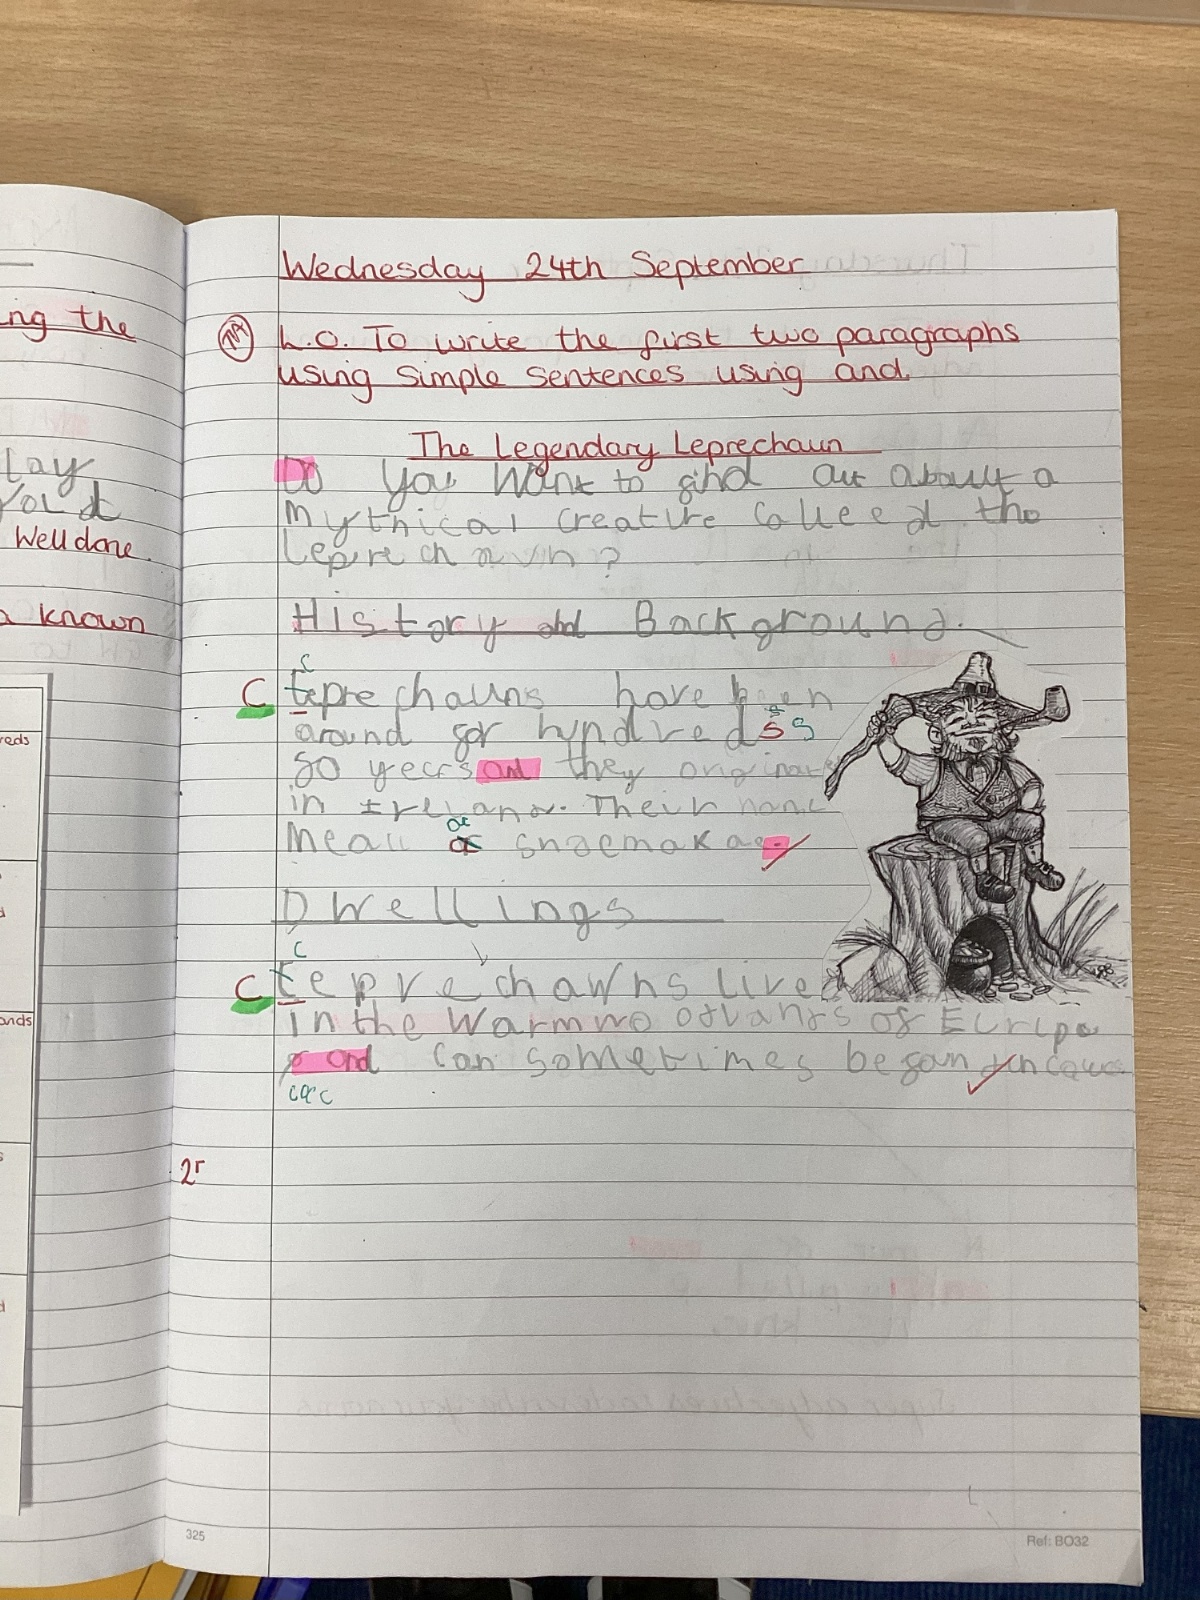 ing the
lay
Well done.
a known
reds
ands
Wednesday 24th September
L.O. To write the first two paragraphs
using simple sentences using and.
The Legendary Leprechaun
Do you want to find out about a
Mythical creature calleed the
Leprechaun?
History and Background.
C
C Leprechauns have been
around for hyndredss s
so years and they originate
in Ireland. Their name
mean a shoemaker.
Dwellings
C
C Leprechawns live
in the warm of Europe
and can sometimes be
2r
325
Ref: BO32